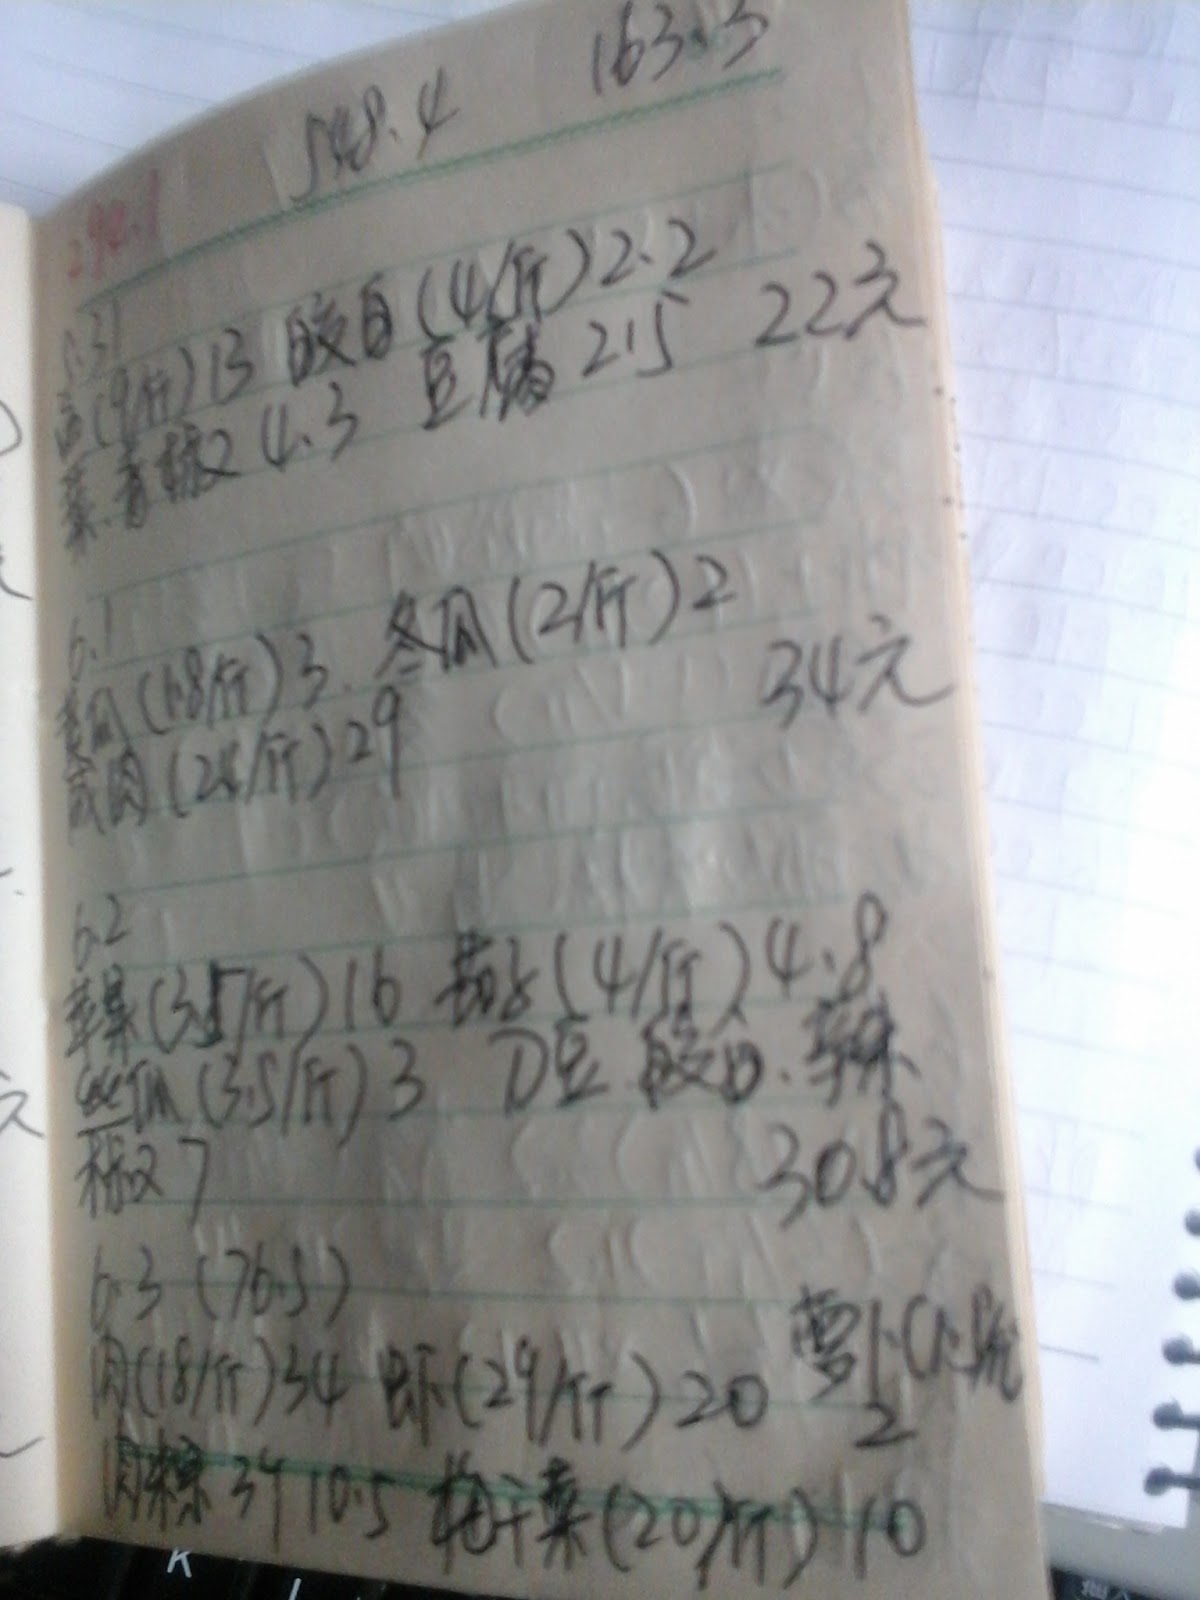 548.4 163.3
294.1
5.31
(9/斤)13 胶白(4/斤)2.2
菜.青椒 4.3 豆腐 2.5 22元
6.1
黄瓜(1.8/斤)3. 冬瓜(2/斤)2
咸肉(28/斤)29 34元
6.2
苹果(3.5/斤)16 茄子(4/斤)4.8
丝瓜(3.5/斤)3 刀豆.胶白.辣
椒 7 30.8元
6.3 (76.5)
肉(18/斤)34 虾(29/斤)20 萝卜
2
肉粽 3个10.5 梅干菜(20/斤)10